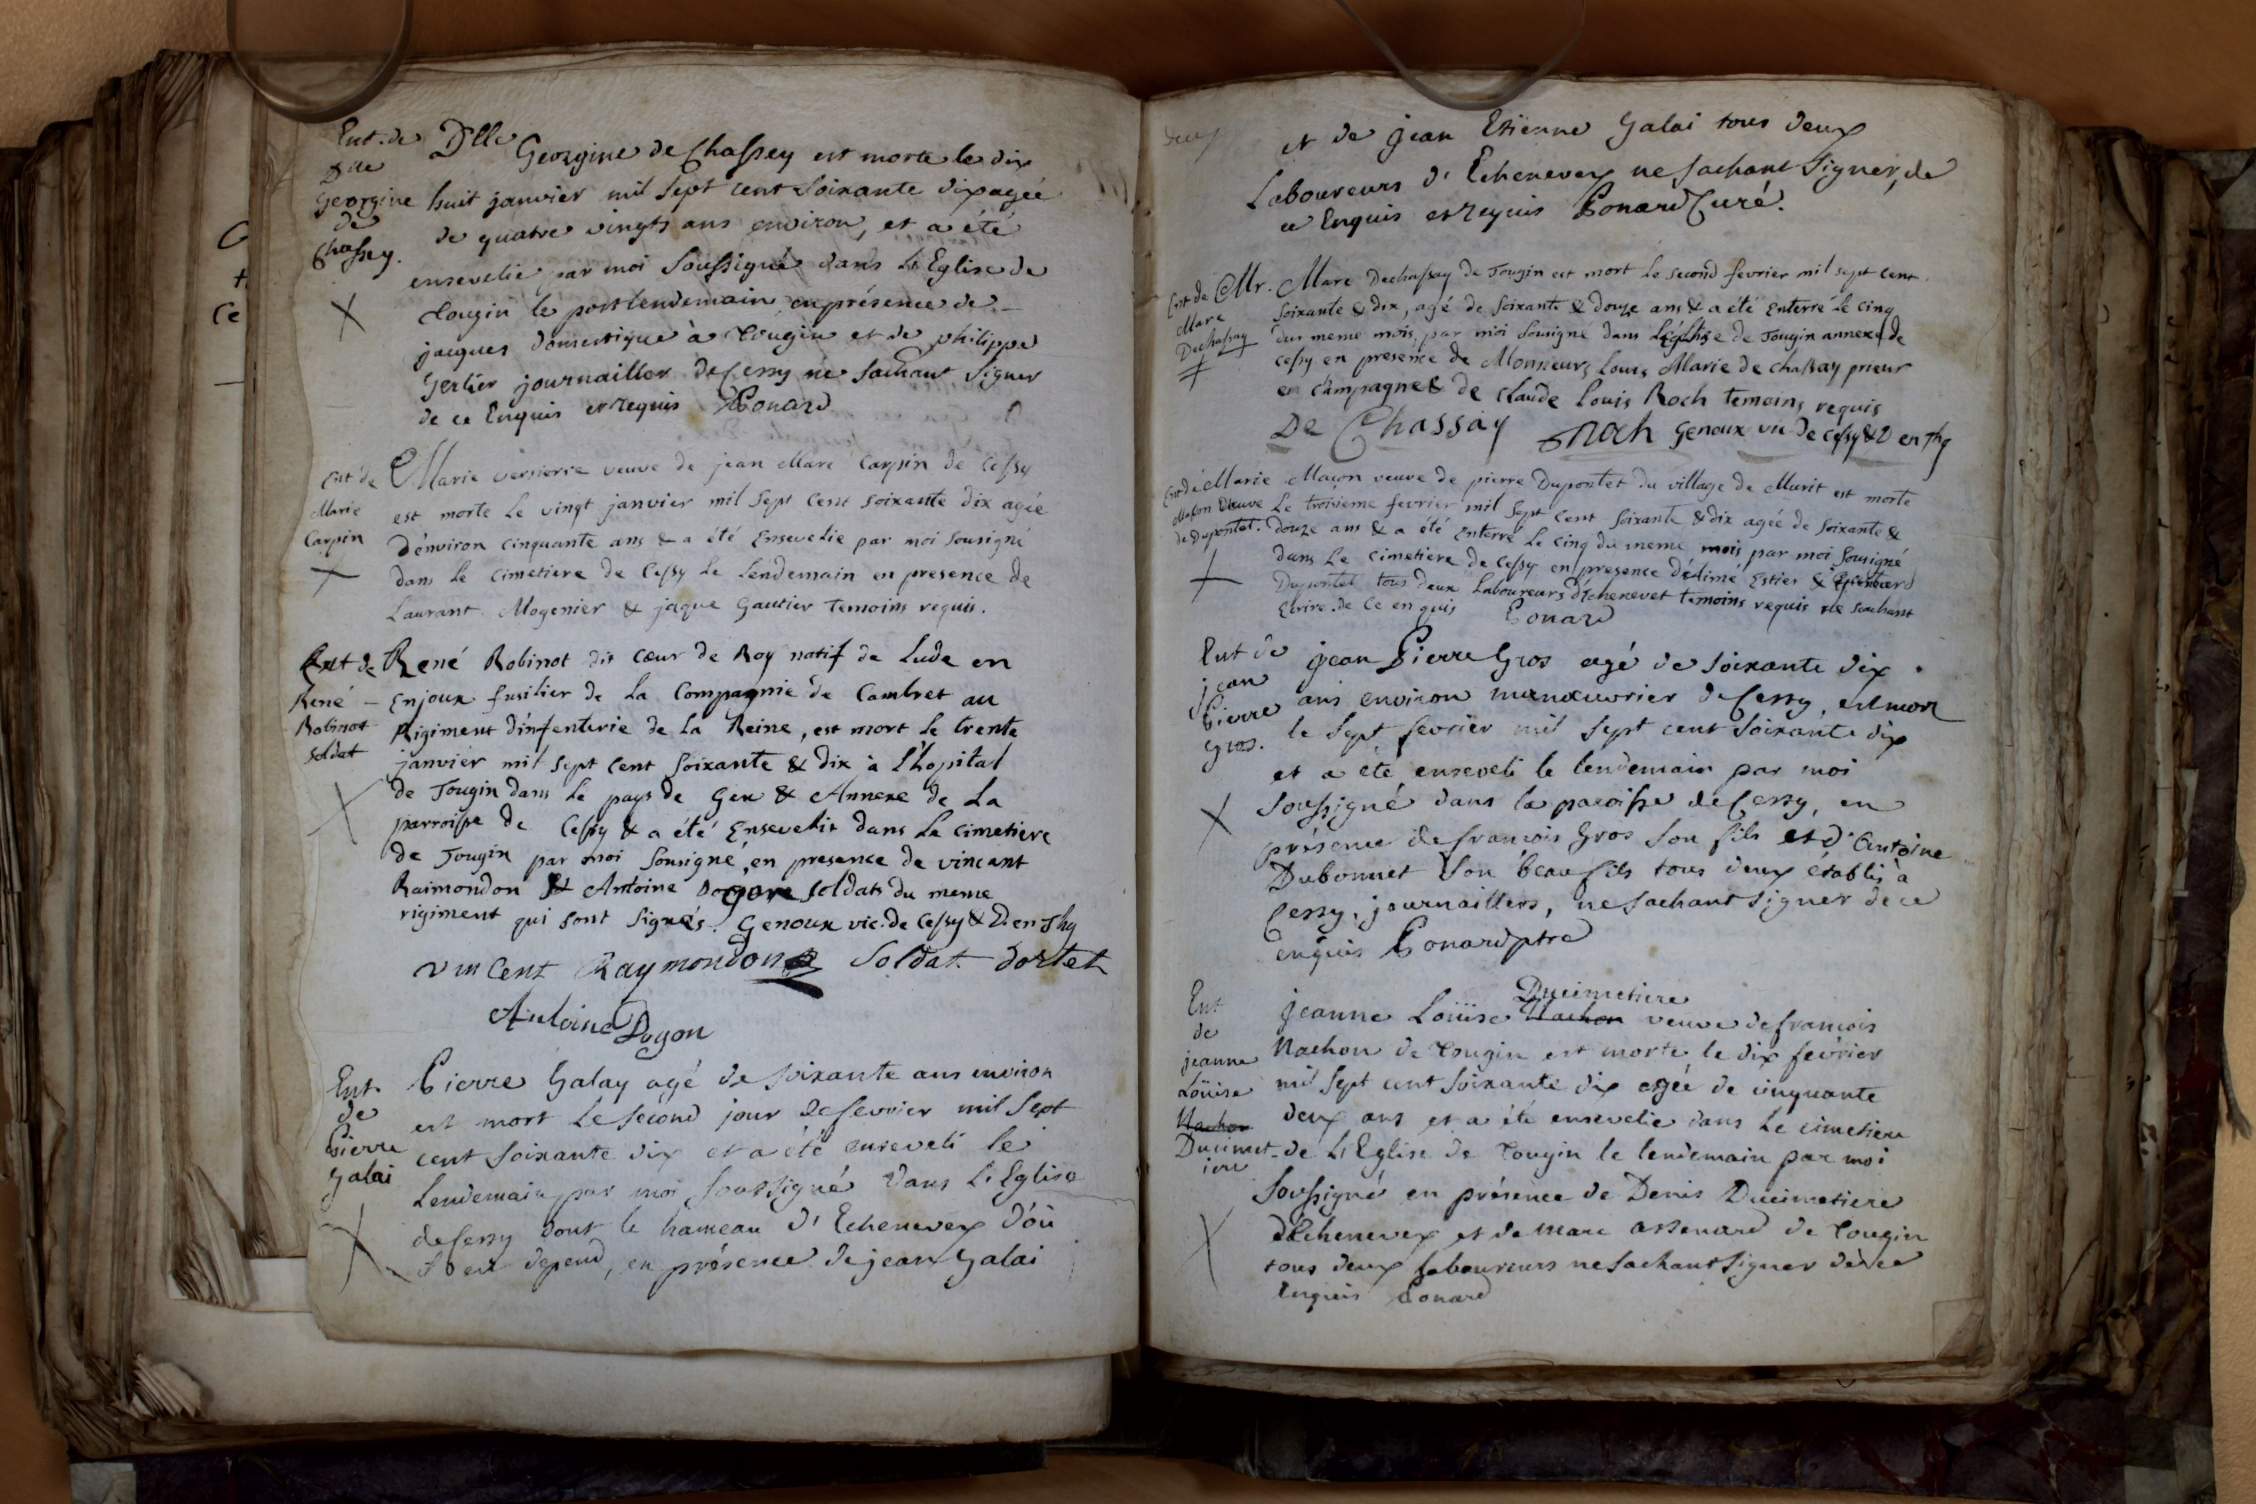 Ent. de
Dlle
Georgine
de
Chassey.
Dlle Georgine de Chassey est morte le dix
huit janvier mil sept cent soixante dix agée
de quatre vingts ans environ, et a été
ensevelie par moi soussigné dans L'Eglise de
Tougin le postlendemain en présence de
jacques domestique à Tougin et de philippe
Gerlier journailler de Cessy ne sachant signer
de ce Enquis et requis Bonard
Ent de
Marie
Carpin
Marie versierre veuve de jean Marc Carpin de Cessy
est morte Le vingt janvier mil sept cent soixante dix agée
d'environ cinquante ans & a été Ensevelie par moi sousigné
dans Le cimetiere de Cessy Le Lendemain en presence de
Laurant Mogenier & jaque Gautier temoins requis.
Ent de
René
Robinot
soldat
René Robinot dit cœur de Roy natif de Lude en
Enjoux fusilier de La Compagnie de Cambret au
Rigiment d'infenterie de La Reine, est mort Le trente
janvier mil sept cent soixante & dix à L'hopital
de Tougin dans Le pays de Gex & Annexe de La
parroisse de Cessy & a été Ensevelit dans Le cimetiere
de Tougin par moi sousigné, en presence de vincant
Raimondon & Antoine Dogore soldats du meme
rigiment qui sont signés. Genoux vic. de Cessy & D en Thg
vincent Raymondon soldat dortet
Antoine Dogon
Ent.
de
Pierre
Galai
Pierre Galay agé de soixante ans environ
est mort Le second jour de fevrier mil sept
cent soixante dix et a été enseveli le
Lendemain par moi soussigné dans L'Eglise
de Cessy dont le hameau d'Echenevex d'où
il en depend, en présence de jean Galai
deux
et de jean Etienne Galai tous deux
Laboureurs d'Echenevex ne sachant signer, de
ce Enquis et requis Bonard Curé.
Ent de
Marc
Dechassay
Mr. Marc Dechassay de Tougin est mort Le second fevrier mil sept cent
soixante & dix, agé de soixante & douze ans & a été Enterré Le cinq
dus meme mois, par moi sousigné dans L'église de Tougin annexe de
Cessy en presence de Monsieurs Louis Marie de chassay prieur
en Campagne & de Claude Louis Roch temoins requis
De Chassay Roch Genoux vic de Cessy & D en Thg
Ent de
Maçon veuve
de Dupontet.
Marie Maçon veuve de pierre Dupontet du village de Murit est morte
Le troisieme fevrier mil sept cent soixante & dix agée de soixante &
douze ans & a été Enterré Le cinq du meme mois, par moi sousigné
dans Le cimetiere de Cessy en presence d'étime Estier &
Dupontet tous deux Laboureurs d'Echenevet temoins requis ne sachant
Ecrire. de ce enquis Bonard
Ent de
jean
Pierre
Gros.
jean Pierre Gros agé de soixante dix
ans environ manœuvrier de Cessy, est mort
le sept fevrier mil sept cent soixante dix
et a été enseveli le lendemain par moi
soussigné dans la paroisse de Cessy, en
présence de francois Gros son fils et d'Antoine
Dubonnet son beau fils tous deux établis à
Cessy, journaillers, ne sachant signer de ce
enquis Bonard ptre
Ent
de
jeanne
Loüise
Nachon
Ducimet-
iere
Ducimetiere
jeanne Loüise Nachon veuve de francois
Nachon de Tougin est morte le dix fevrier
mil sept cent soixante dix agée de cinquante
deux ans et a été ensevelie dans Le cimetiere
de L'Eglise de Tougin le lendemain par moi
soussigné en présence de Denis Ducimetiere
d'Echenevex et de Marc assenard de Tougin
tous deux laboureurs ne sachant signer de ce
Enquis Bonard